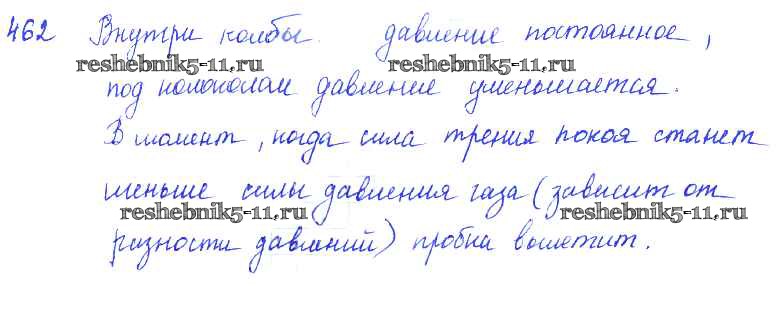 462 Внутри колбы давление постоянное,
reshebnik5-11.ru reshebnik5-11.ru
под колоколом давление уменьшается.
В момент, когда сила трения покоя станет
меньше силы давления газа (зависит от
reshebnik5-11.ru reshebnik5-11.ru
разности давлений) пробка вылетит.